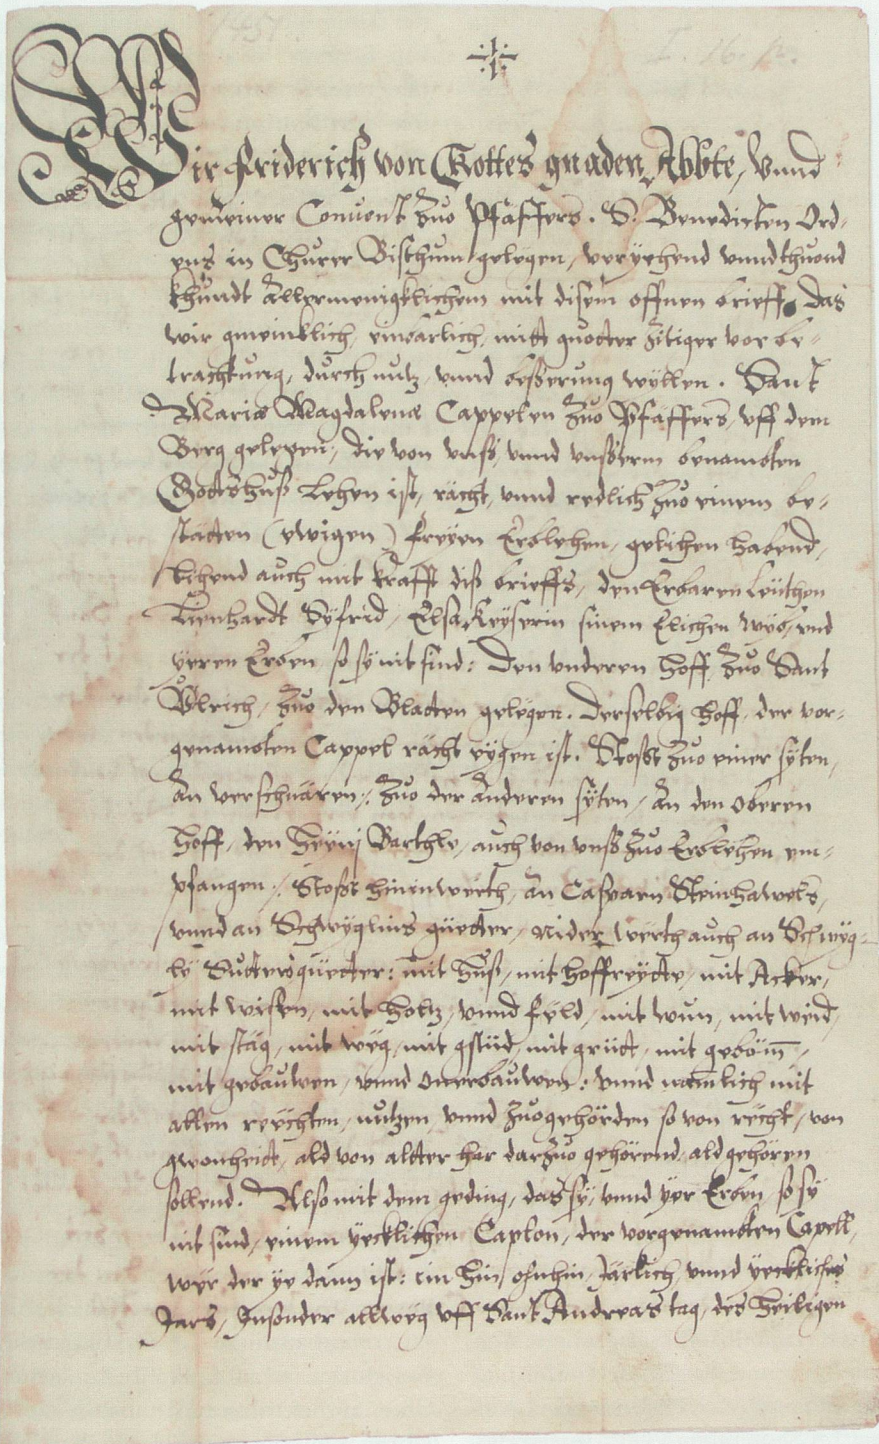 1451.
I. 16. 12.
Wir Friderich von Gottes gnaden Abbte, Vnnd
gemeiner Conuent zuo Pfäffers. S. Benedicten Ord-
ens in Churer Bisthum gelegen, veryehend vnnd thuond
khundt Allermenigklichem mit disem offnen brieff, das
wir gmeinklich, einbarlich, mitt guotter zitiger vor be-
trachtung, durch nutz, vnnd besserung wyllen. Sant
Mariæ Magdalenæ Cappelen zuo Pfäffers, vff dem
Berg gelegen, die von vnß, vnnd vnßerm benambten
Gottshuß Lehen ist, rächt, vnnd redlich zuo einem be-
stätten (ewigen) freyen Erblehen, gelichen habend,
lichend auch mit krafft diß brieffs, den Erbaren leüthen
Lienhardt Syfrid, Elsa Keyserin sinem Elichen wyb, vnd
yeren Erben so sy nit sind: Den vnderen hoff zuo Sant
Vlrich, zuo den Blatten gelegen. Derselbig hoff, der vor-
genambten Cappel rächt eygen ist. Stoßt zuo einer syten,
An verschnären: zuo der Anderen syten, An den oberen
hoff, den Heynj Barthle, auch von vnß zuo Erblehen em-
pfangen: Stoßt hinin werth, an Casparn Steinhawels,
vnnd an Schwyglins güetter, nider werth auch an Schwyg-
ly Sutters güetter: mit huß, mit hoffreytte, mit Acker,
mit wisen, mit holtz, vnnd fyld, mit wun, mit weid,
mit stäg, mit wëg, mit gstüd, mit grütt, mit geböm,
mit gebauwen, vnnd onerbauwen: vnnd namlich mit
allen reechten, nutzen vnnd zuogehörden so von rëcht, von
gwonheit, ald von altter har darzuo gehörend, ald gehören
sollend. Also mit dem geding, das sy, vnnd yer Erben so sy
nit sind, einem yecklichen Caplon, der vorgenambten Capell,
wyr der ye dann ist: hin ohnhin, Järlich, vnnd yeckliches
Jars, Insonder allweg vff Sant Andreas tag, des heiligen